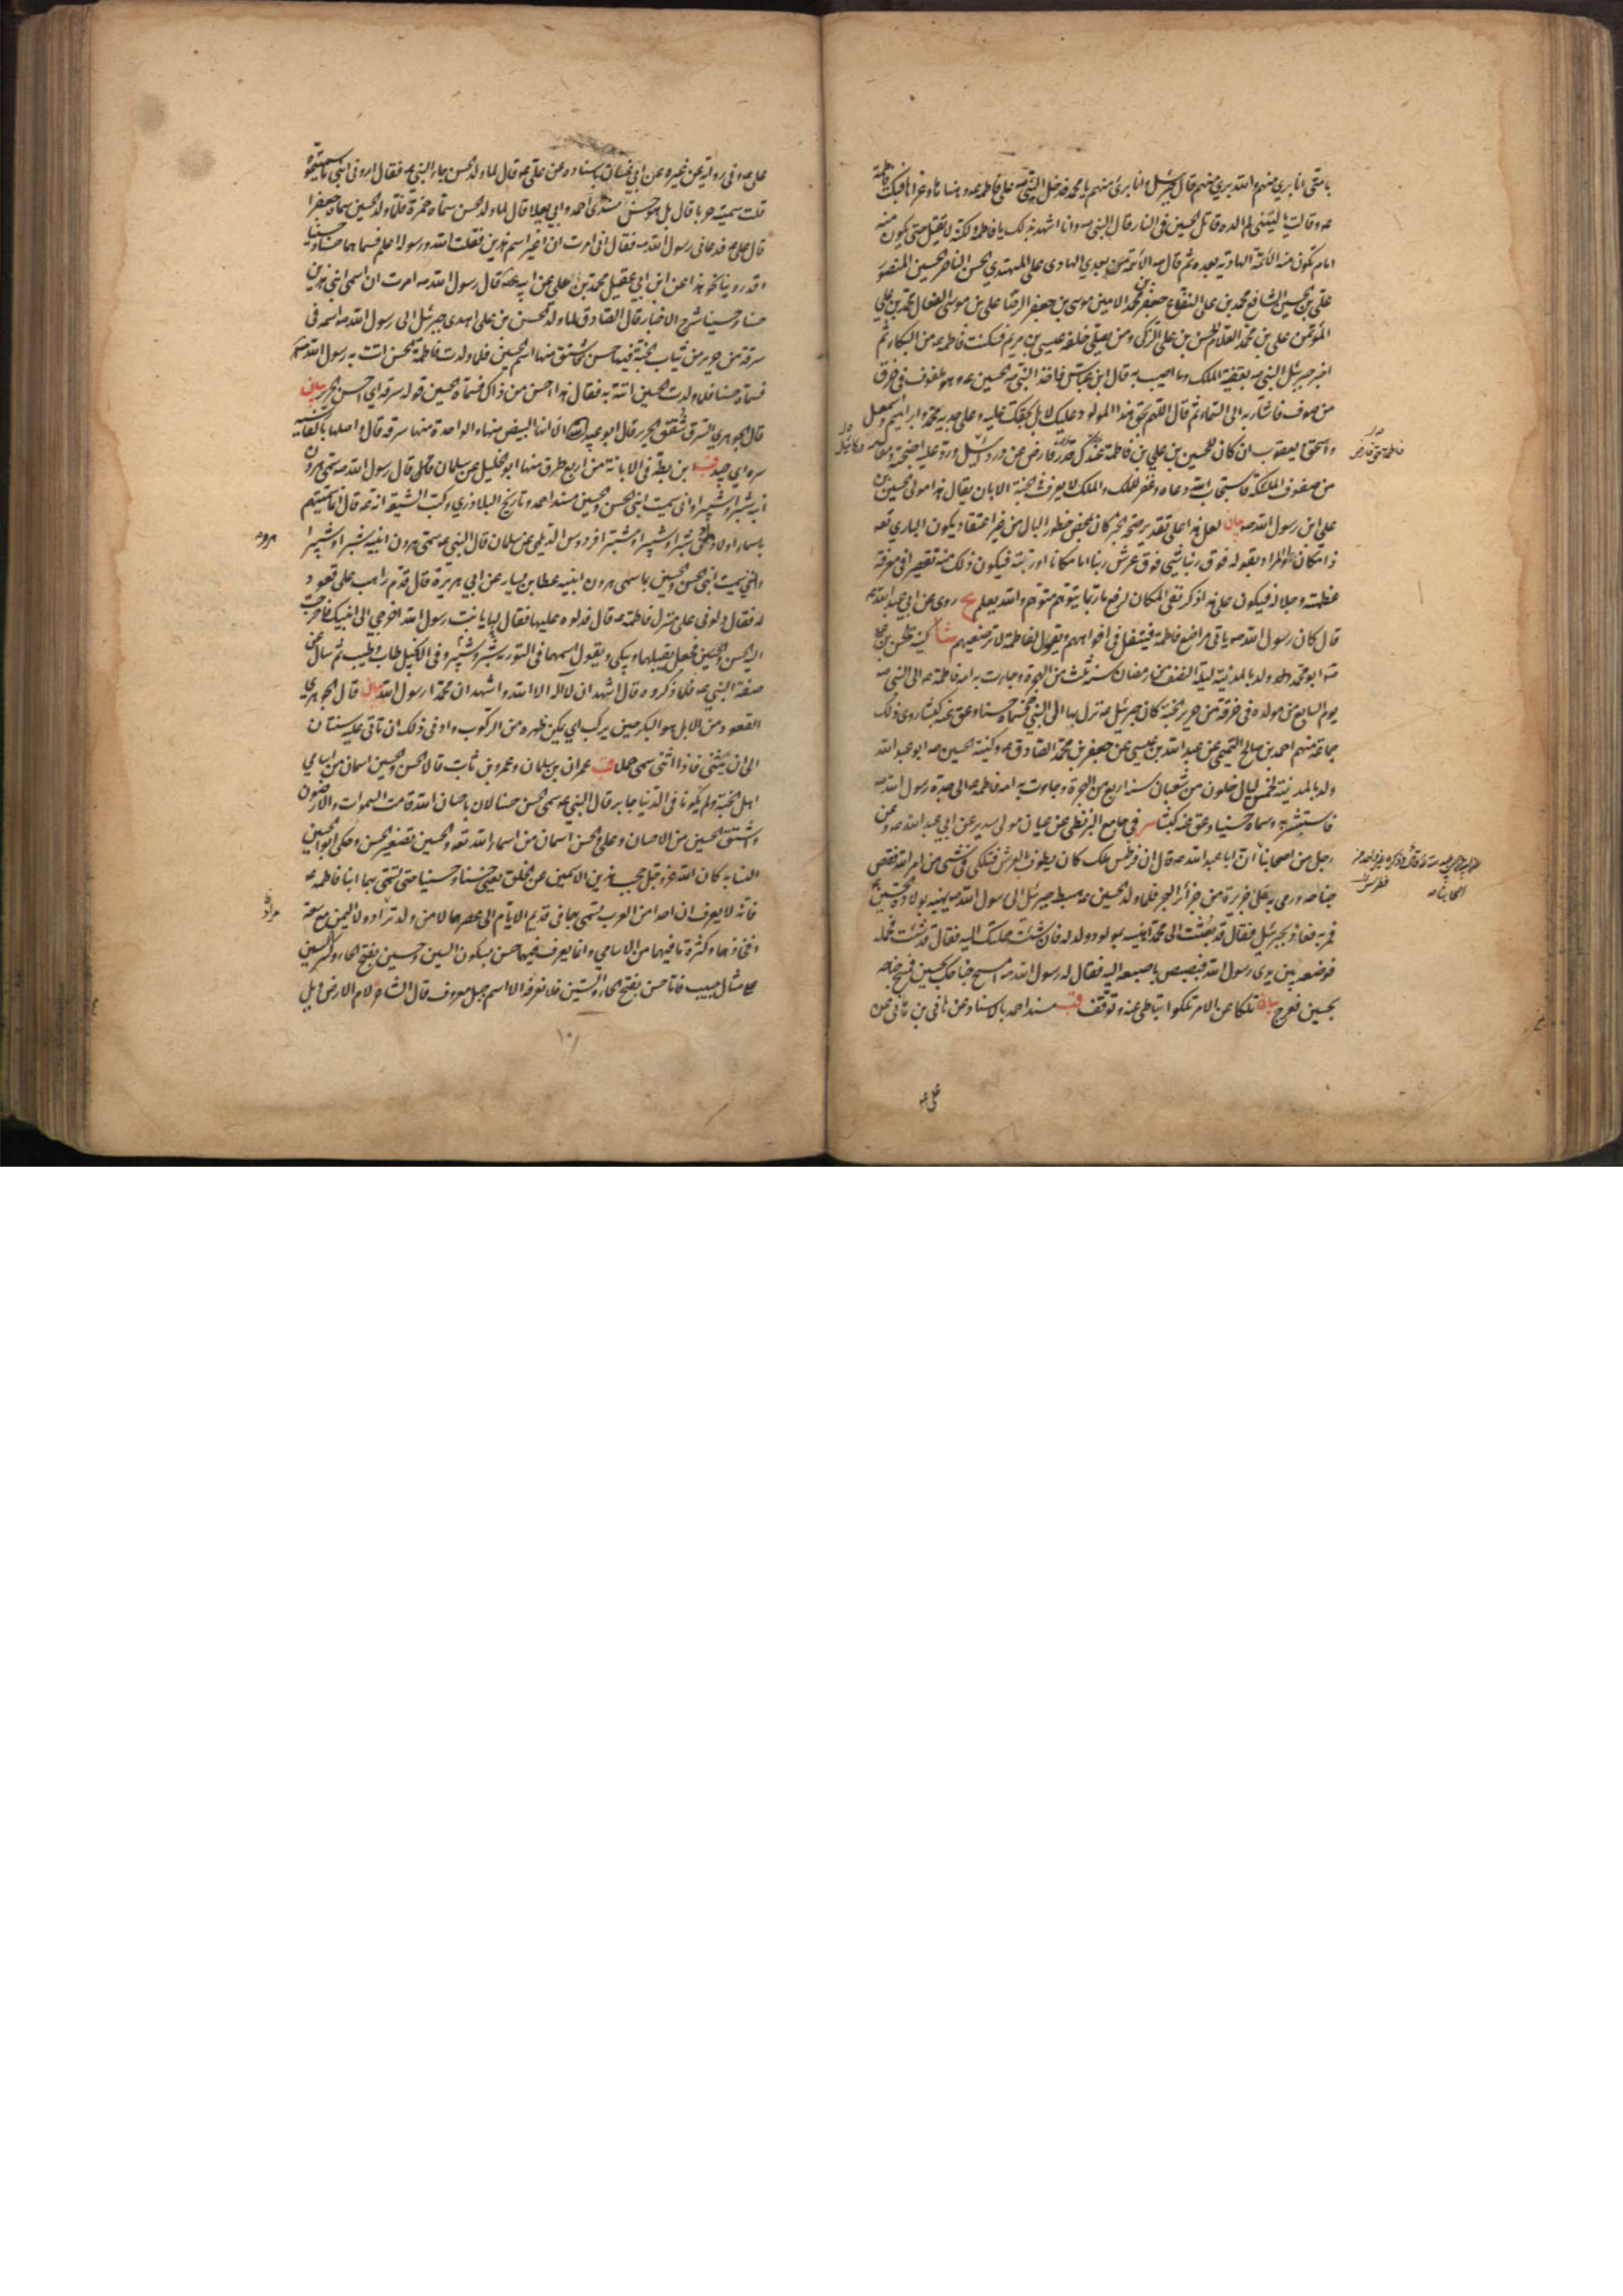 بامتي انا بري منهم والله بري منهم قال جبرئيل انا بري منهم يا محمد فدخل النبي صه على فاطمة عه وهناها وعزاها فبكت فاطمة
عه وقالت يا ليتني لم الده قاتل الحسين في النار قال النبي صه وانا اشهد بذلك يا فاطمة ولكنه لا يقتل حتى يكون منه
امام تكون منه الائمة الهادية بعده ثم قال صه الائمة من بعدي الهادي علي المهتدي الحسن الناصر الحسين المنصور
علي بن الحسين الشافع محمد بن علي النفاع جعفر بن محمد الامين موسى بن جعفر الرضا علي بن موسى الفعال محمد بن علي
المؤتمن علي بن محمد العلام الحسن بن علي الزكي ومن يصلي خلفه عيسى بن مريم فسكنت فاطمة عه من البكاء ثم
اخبر جبرئيل النبي صه بقضية الملك وما اصيب به قال ابن عباس فاخذ النبي صه الحسين عه وهو ملفوف في خرق
من صوف فاشار به الى السماء ثم قال اللهم بحق هذا المولود عليك لا بل بحقك عليه وعلى جده محمد وابراهيم واسمعيل
واسحق ويعقوب ان كان للحسين بن علي بن فاطمة عندك قدر فارض عن دردائيل ورد عليه اجنحته ومقامه
من صفوف الملئكة فاستجاب الله دعاه وغفر للملك والملك لا يعرف في الجنة الا بان يقال هذا مولى الحسين بن
علي ابن رسول الله صه بيان لعل هذا على تقدير صحة الخبر كان بمحض خطور البال من غير اعتقاد بكون الباري تعه
ذا مكان او المراد بقوله فوق ربنا شي فوق عرش ربنا اما مكانا او رتبة فيكون ذلك منه تقصيرا في معرفة
عظمته وجلاله فيكون على هذا ذكر نفي المكان لرفع ما ربما يتوهم متوهم والله يعلم يج روى عن ابي عبد الله عه
قال كان رسول الله صه ياتي مراضع فاطمة فيتفل في افواههم ويقول لفاطمة لا ترضعيهم شا كنية الحسن بن علي
عه ابو محمد ولد بالمدينة ليلة النصف من رمضان سنة ثلث من الهجرة وجاءت به امه فاطمة عه الى النبي صه
يوم السابع من مولده في خرقة من حرير الجنة كان جبرئيل عه نزل بها الى النبي صه فسماه حسنا وعق عنه كبشا روى ذلك
جماعة منهم احمد بن صالح التميمي عن عبد الله بن عيسى عن جعفر بن محمد الصادق عه وكنية الحسين عه ابو عبد الله
ولد بالمدينة لخمس ليال خلون من شعبان سنة اربع من الهجرة وجاءت به امه فاطمة عه الى جده رسول الله صه
فاستبشر به وسماه حسينا وعق عنه كبشا سر في جامع البزنطي عن عيان مولى سدير عن ابي عبد الله عه وعن
رجل من اصحابنا ان ابا عبد الله عه قال ان فطرس ملك كان يطوف بالعرش فتلكى في شي من امر الله فقص
جناحه ورمي به على جزيرة من جزائر البحر فلما ولد الحسين عه هبط جبرئيل الى رسول الله صه يهنيه بولادة الحسين عه
فمر به فعاذ بجبرئيل فقال قد بعثت الى محمد اهنيه بمولود ولد له فان شئت حملتك اليه فقال قد شئت فحمله
فوضعه بين يدي رسول الله فبصبص باصبعه اليه فقال له رسول الله صه امسح جناحك بحسين فمسح جناحه
بحسين فعرج بيان تلكا عن الامر تلكوا تباطى عنه وتوقف قب مسند احمد بالاسناد عن هاني بن هاني عن
علي عه
علي عه وفي رواية عن غيره عن ابي غسان باسناده عن علي عه قال لما ولد الحسن جاء النبي صه فقال اروني ابني ما سميتموه
قلت سميته حربا قال بل هو حسن مسندي احمد وابي يعلا قال لما ولد الحسن سماه حمزة فلما ولد الحسين سماه جعفرا
قال علي عه فدعاني رسول الله صه فقال اني امرت ان اغير اسم هذين فقلت الله ورسوله اعلم فسماهما حسنا وحسينا
وقد روينا نحو هذا عن ابن ابي عقيل محمد بن علي عن ابيه عه قال رسول الله صه امرت ان اسمي ابني هذين
حسنا وحسينا شرح الاخبار قال الصادق لما ولد الحسن بن علي اهدى جبرئيل الى رسول الله صه اسمه في
سرقة من حرير من ثياب الجنة فيها حسن واشتق منها اسم الحسين فلما ولدت فاطمة الحسن اتت به رسول الله صه
فسماه حسنا فلما ولدت الحسين اتته به فقال هذا احسن من ذاك فسماه الحسين قوله سرقه اي احسن الحرير بيان
قال الجوهري السرق شقق الحرير قال ابو عبيدة الا انها البيض منها والواحدة منها سرقه قال واصلها بالفارسية
سره اي جيد قب ابن بطه في الابانة من اربع طرق منها ابو الخليل عن سلمان قال رسول الله صه سمى هرون
ابنيه شبرا وشبيرا واني سميت ابني الحسن والحسين مسند احمد وتاريخ البلاذري وكتب الشيعة انه قال انما سميتهم
باسماء اولاد هرون شبرا وشبيرا ومشبرا فردوس الديلمي عن سلمان قال النبي صه سمى هرون ابنيه شبرا وشبيرا
وانني سميت ابني الحسن والحسين بما سمى هرون ابنيه عطا بن يسار عن ابي هريرة قال قدم راهب على قعود
له فقال دلوني على منزل فاطمة عه قال فدلوه عليها فقال لها يا بنت رسول الله اخرجي الى ابنيك فاخرجت
اليه الحسن والحسين فجعل يقبلهما ويبكي ويقول اسمهما في التورية شبر وشبير وفي الانجيل طاب وطيب ثم سال عن
صفة النبي صه فلما ذكروه قال اشهد ان لا اله الا الله واشهد ان محمدا رسول الله بيان قال الجوهري
القعود من الابل هو البكر حين يركب اي يمكن ظهره من الركوب وادنى ذلك ان تاتي عليه سنتان
الى ان يثني فاذا اثنى سمي جملا قب عمران بن سلمان وعمرو بن ثابت قالا الحسن والحسين اسمان من اسامي
اهل الجنة ولم يكونا في الدنيا جابر قال النبي صه سمي الحسن حسنا لان باحسان الله قامت السموات والارضون
واشتق الحسين من الاحسان وعلي والحسن اسمان من اسماء الله تعه والحسين تصغير الحسن وحكى ابو الحسين
النسابه كان الله عز وجل حجب هذين الاسمين عن الخلق يعني حسنا وحسينا حتى يسمى بهما ابنا فاطمه عه
فانه لا يعرف ان احدا من العرب تسمى بهما في قديم الايام الى عصرهما لا من ولد نزار ولا اليمن مع سعة
افخاذهما وكثرة ما فيهما من الاسامي وانما يعرف فيهما حسن بسكون السين وحسين بفتح الحاء وكسر السين
على مثال حبيب فاما حسن بفتح الحاء والسين فلا نعرفه الا اسم جبل معروف قال الشاعر لام الارض ويل